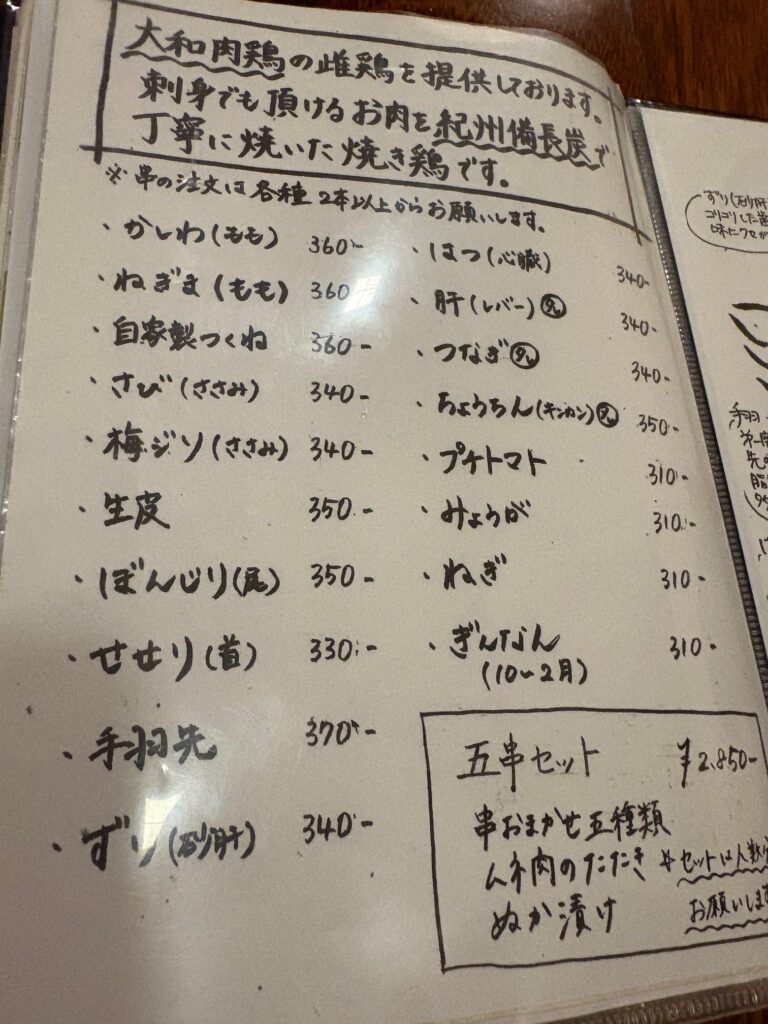 大和肉鶏の雌鶏を提供しております。
刺身でも頂けるお肉を紀州備長炭で
丁寧に焼いた焼き鶏です。
※串の注文は各種2本以上からお願いします。
・かしわ(もも) 360-
・ねぎま(もも) 360
・自家製つくね 360-
・さび(ささみ) 340-
・梅ジソ(ささみ) 340-
・生皮 350-
・ぼんじり(尾) 350-
・せせり(首) 330-
・手羽先 370-
・ずり(砂肝) 340-
・はつ(心臓) 340-
・肝(レバー) 340-
・つなぎ 340-
・ちょうちん(キンカン) 350-
・プチトマト 310-
・みょうが 310-
・ねぎ 310-
・ぎんなん 310-
(10~2月)
五串セット ¥2.850-
串おまかせ五種類
ムネ肉のたたき
ぬか漬け
セットは人数分
お願いします
ずり(砂肝
コリコリした
味にクセが
手羽